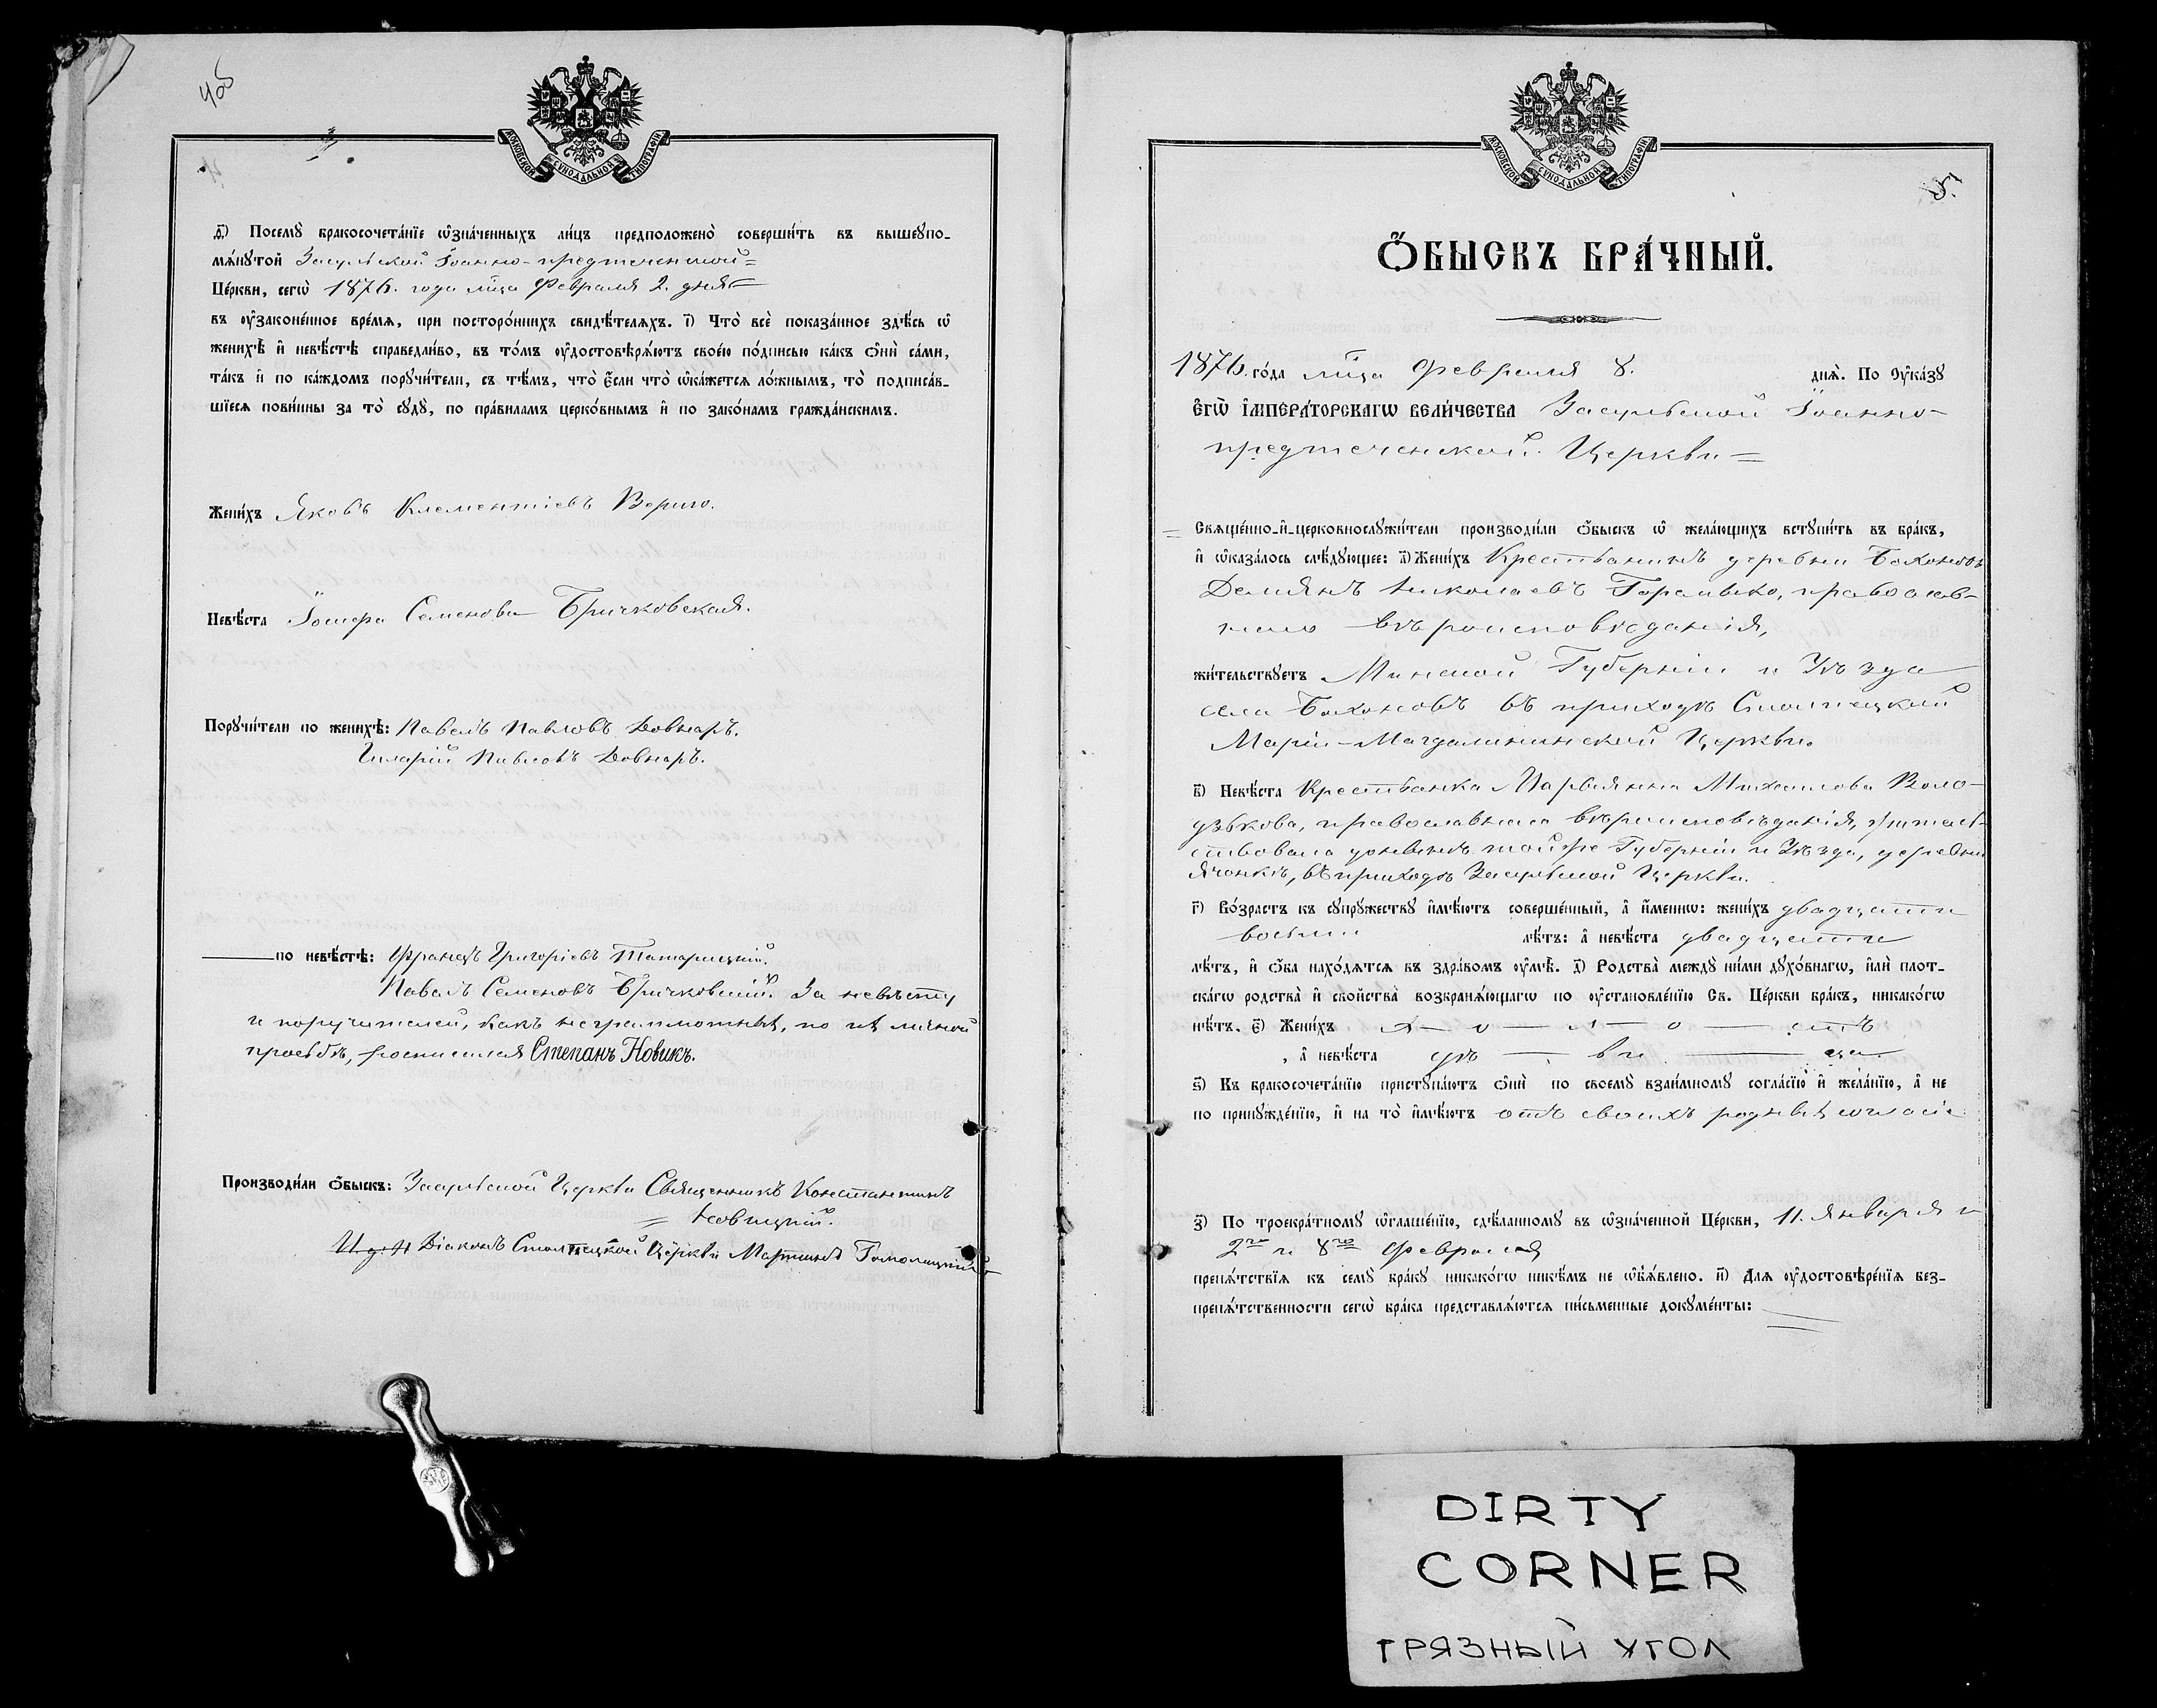 4об
МОСКОВСКОЙ СѴНОДАЛЬНОЙ ТИПОГРАФІИ
д҃) Посемꙋ бракосочета́нїе ѡ҆зна́ченныхъ ли́цъ предположено̀ соверши́ть въ вышеꙋпо-
мѧ́нꙋтой Засульской Іоанно-предтеченской=
Це́ркви, сегѡ̀ 1876. года м-ца Февраля 2. дня
въ ᲂу҆законе́нное вре́мѧ, при посторо́ннихъ свидѣ́телѧхъ. і҃) Что̀ всѐ пока́занное здѣ́сь ѡ҆
женихѣ̀ и҆ невѣ́стѣ справедли́во, въ то́мъ ᲂу҆достовѣрѧ́ютъ свое́ю по́дписью ка́къ ѻ҆нѝ са́ми,
та́къ и҆ по ка́ждомъ порꙋчи́тели, съ тѣ́мъ, что̀ є҆́сли что̀ ѡ҆ка́жетсѧ ло́жнымъ, то̀ подписа́в-
шїесѧ пови́нны за то̀ сꙋдꙋ̀, по пра́виламъ церко́внымъ и҆ по зако́намъ гражда́нскимъ.
Жени́хъ Яковъ Клементіевъ Вериго.
Невѣ́ста Іозефа Семенова Бричковская.
Порꙋчи́тели по женихѣ̀: Павелъ Павловъ Довнаръ.
Иларій Павловъ Довнаръ.
по невѣ́стѣ: Францъ Григоріевъ Татарицкій.
Павелъ Семеновъ Бричковскій. За невѣсту
и поручителей, какъ неграмотныхъ, по ихъ личной
просьбѣ, росписался Степанъ Новикъ.
Производи́ли ѻ҆́быскъ: Засульской Церкви Священникъ Константинъ
= Новицкій.
И. д. П Діаконъ Столпецкой Церкви Мартинъ Гомолицкій
МОСКОВСКОЙ СѴНОДАЛЬНОЙ ТИПОГРАФІИ
5.
Ѻ҆́БЫСКЪ БРА́ЧНЫЙ.
1876. го́да м-ца Февраля 8. днѧ̀. По ᲂу҆ка́зꙋ
Є҆ГѠ̀ И҆МПЕРА́ТОРСКАГѠ ВЕЛИ́ЧЕСТВА Засульской Іоанно-
предтеченской Церкви=
= Свѧще́нно-и҆-церковнослꙋжи́тели производи́ли ѻ҆́быскъ ѡ҆ жела́ющихъ встꙋпи́ть въ бра́къ,
и҆ ѡ҆каза́лось слѣ́дꙋющее: а҃) Жени́хъ Крестьянинъ деревни Бохоновъ
Демянъ Николаевъ Горальско, православ-
наго вѣроисповѣданія,
жи́тельствꙋетъ Минской Губерніи и Уѣзда
села Бохоновъ въ приходѣ Столпецкой
Маріи-Магдалининской Церкви.
в҃) Невѣ́ста Крестьянка Марьянна Михаилова Воло-
дзькова, православнаго вѣроисповѣданія, жительс-
ствовала донынѣ той же Губерніи и Уѣзда, деревни
Ячонкѣ, въ приходѣ Засульской Церкви.
г҃) Во́зрастъ къ сꙋпрꙋ́жествꙋ и҆мѣ́ютъ соверше́нный, а҆ и҆́меннѡ: жени́хъ двадцати
восьми лѣ́тъ: а҆ невѣ́ста двадцати
лѣ́тъ, и҆ ѻ҆́ба нахо́дѧтсѧ въ здра́вомъ ᲂу҆мѣ̀. д҃) Родства̀ междꙋ̀ ни́ми дꙋхо́внагѡ, и҆лѝ плот-
ска́гѡ родства̀ и҆ сво́йства̀ возбранѧ́ющагѡ по ᲂу҆становле́нїю Св. Це́ркви бра́къ, никако́гѡ
нѣ́тъ. є҃) Жени́хъ х — о — л — о — стъ
, а҆ невѣ́ста дѣ — ви — ца.
ѕ҃) Къ бракосочета́нїю пристꙋпа́ютъ ѻ҆нѝ по своемꙋ̀ взаи́мномꙋ согла́сїю и҆ жела́нїю, а҆ не
по принꙋжде́нїю, и҆ на то̀ и҆мѣ́ютъ отъ своихъ родныхъ согласіе
з҃) По троекра́тномꙋ ѡ҆глаше́нїю, сдѣ́ланномꙋ въ ѡ҆зна́ченной Це́ркви, 11. Января и
2го и 8го Февраля
препѧ́тствїѧ къ семꙋ̀ бра́кꙋ никако́гѡ никѣ́мъ не ѡ҆б̾ѧ́влено. и҃) Длѧ ᲂу҆достовѣре́нїѧ без-
препѧ́тственности сегѡ̀ бра́ка представлѧ́ютсѧ пи́сьменные докꙋме́нты:
DIRTY
CORNER
ГРЯЗНЫЙ УГОЛ